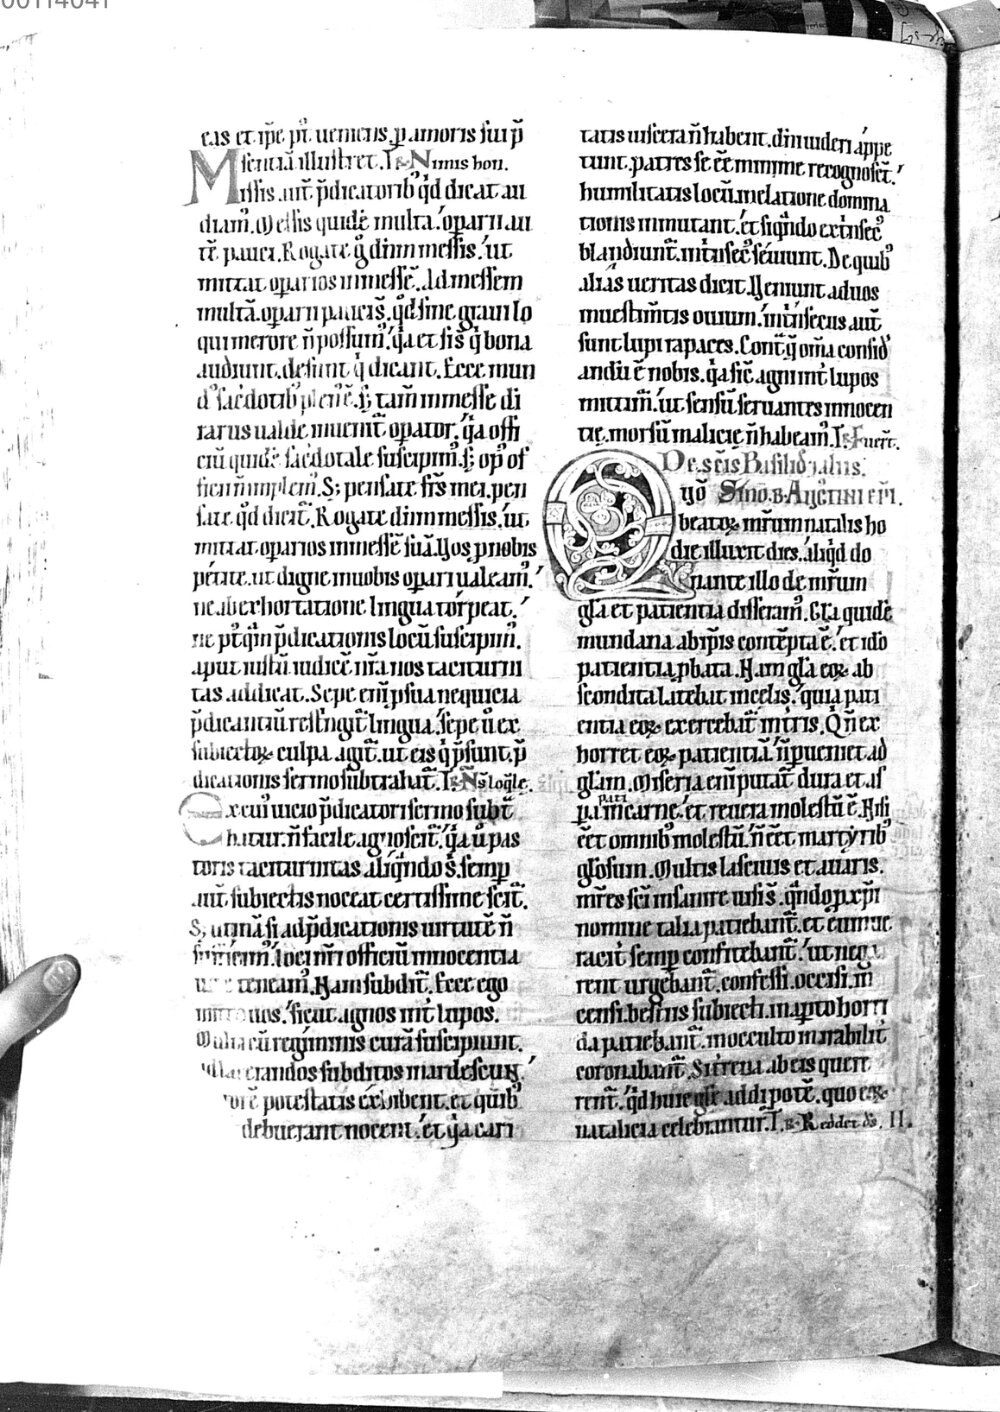 00114041
eas et ip̄e pꝰ ueniens ꝑ amoris sui p̄
sentiā illustret. T R Nimis hon.
Missis aut̄ p̄dicatoribꝰ qd̄ dicat au
diamꝰ. Messis quidē multa. oꝑarii au
tē pauci. Rogate ḡ dn̄m messis. ut
mittat oꝑarios in messē. Ad messem
multā. oꝑarii pauci s̄. qd̄ sine graui lo
qui merore n̄ possumꝰ. q̇a et si s̄ q̇ bona
audiunt. desunt q̇ dicant. Ecce mun
dꝰ sac̄dotibꝰ plenꝰ ē. s; tam̄ in messe di
rarus ualde inuenit̄ oꝑator. q̇a offi
ciū quidē sac̄dotale suscipimꝰ. s; opꝰ of
ficii n̄ implemꝰ. S; pensate fr̄s mei. pen
sate qd̄ dicit̄. Rogate dn̄m messis. ut
mittat oꝑarios in messē suā. Vos ꝓ nobis
petite. ut digne in uobis oꝑari ualeamꝰ.
ne ab exhortatione lingua torpeat.
ne pꝰtq̄m p̄dicationis locū suscipimꝰ.
aput iustū iudicē nr̄a nos taciturni
tas addicat. Sepe eni ꝓ sua nequicia
p̄dicantiū restringit̄ lingua. sepe u̇ ex
subiectoꝝ culpa agit̄. ut eis q̇ p̄sunt. p̄
dicationis sermo subtrahat̄. T R Ns̄ loq̄le.
Ex cuiꝰ uicio p̄dicatori sermo subt̄
hatur. n̄ facile agnoscit̄. q̇a u̇ pas
toris taciturnitas aliq̄ndo s̄. semꝑ
aut̄ subiectis noceat certissime scit̄.
S; utinā si ad p̄dicationis uirtutē n̄
sufficimꝰ. loci nr̄i officiū in innocentia
uite teneamꝰ. Nam subdit̄. Ecce ego
mitto uos. sicut agnos int̄ lupos.
Multi cū regiminis curā suscipiunt.
ad lacerandos subditos inardescunt
rorē potestatis exhibent. et quibꝰ
debuerant nocent. et q̇a cari
tatis uiscera n̄ habent. dn̄i uideri appe
tunt. patres se eē minime recognosct̄.
humilitatis locū in elatione domina
tionis inmutant. et si q̄ndo ext̄nsecꝰ
blandiunt̄. int̄nsecꝰ seuiunt. De quibꝰ
alias ueritas dicit. Veniunt ad uos
in uestim̄tis ouium. int̄nsecus aut̄
sunt lupi rapaces. Contᵃ q̄ om̄ia consid
andū ē nobis. q̇a sic̄ agni int̄ lupos
mittimꝰ. ut sensū seruantes innocen
tie. morsū malicie n̄ habeamꝰ. T R Fuert̄.
De sc̄is Basilid
Smo. B. Aug
Quō
beatoꝝ mr̄um natalis ho
die illuxit dies. aliqd̄ do
nante illo de mr̄um
gl̄a et patientia disseramꝰ. Gl̄a quidē
mundana ab ip̄is contēpta ē. et ido
patientia ꝓbata. Nam gl̄a eoꝝ ab
scondita latebat in celis. quia pati
entia eoꝝ exercebat̄ in t̄ris. Q̇ n̄ ex
horret eoꝝ patientiā. n̄ ꝑueniet ad
gl̄am. Miseria eni putat̄ dura et as
ꝑa pati in carne. et reuera molestū ē. Nisi
eēt omnibꝰ molestū. n̄ eēt martyribꝰ
gl̄osum. Multis lasciuis et auaris.
mr̄es sc̄i insanire uisi s̄. q̄ndo ꝓ xp̄i
nomine talia patiebant̄. et eum ue
racit̄ semꝑ confitebant̄. ut nega
rent urgebant̄. confessi. occisi. in
censi. bestiis subiecti. in aꝑto horri
da patiebant̄. in occulto mirabilit̄
coronabant̄. Si t̄rena ab eis quere
rent̄. qd̄ huic gl̄e addi potē. quo eoꝝ
natalicia celebrantur. T R Reddet ds̄. II.